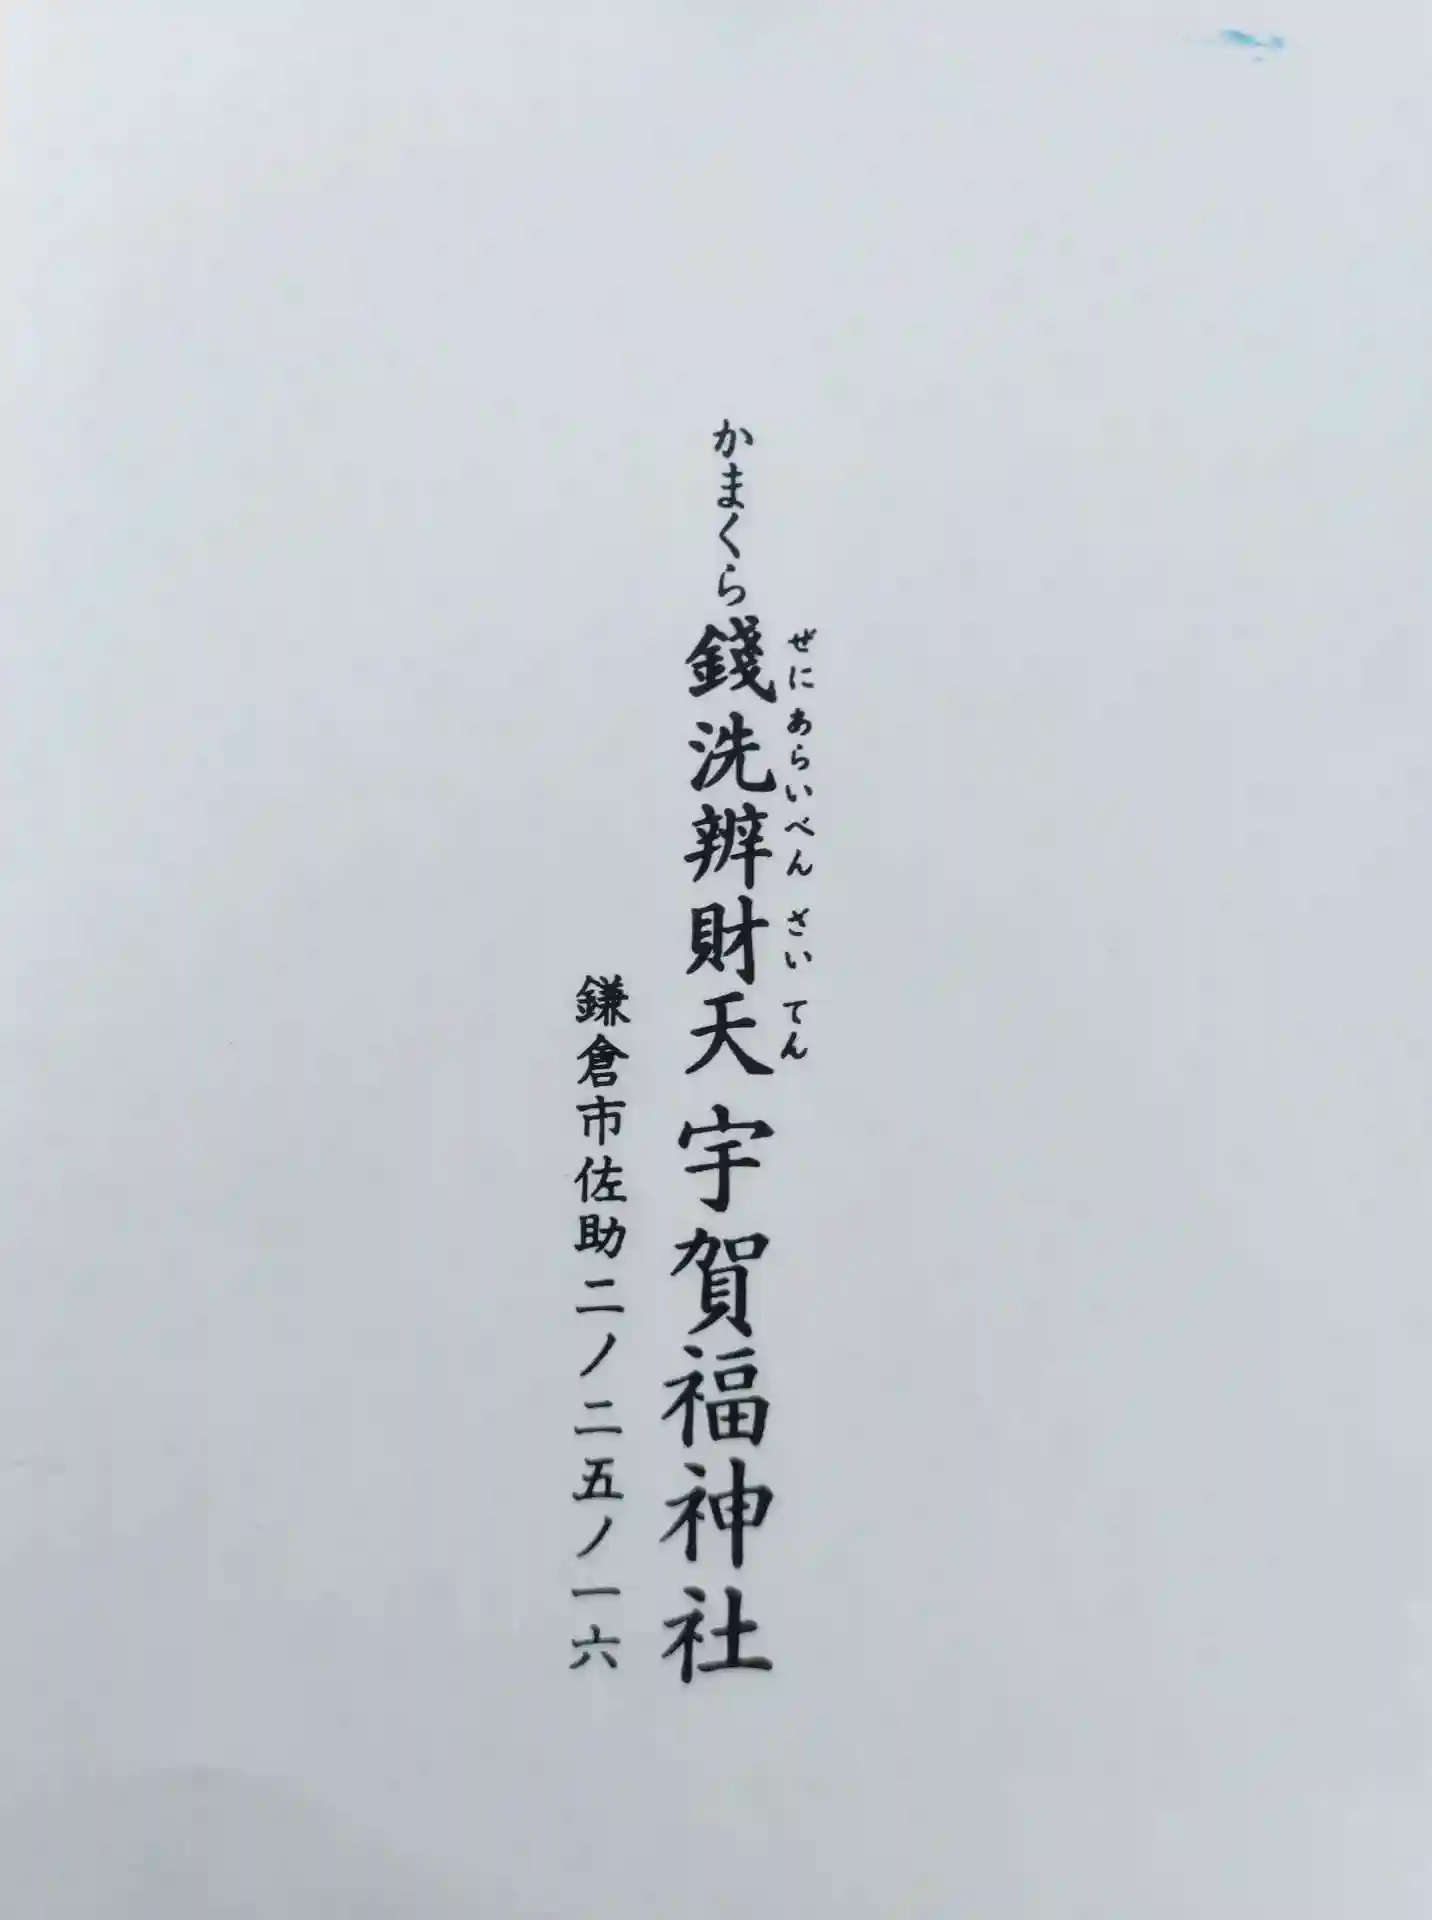 かまくら錢洗辨財天宇賀福神社
ぜにあらいべんざいてん
鎌倉市佐助二ノ二五ノ一六